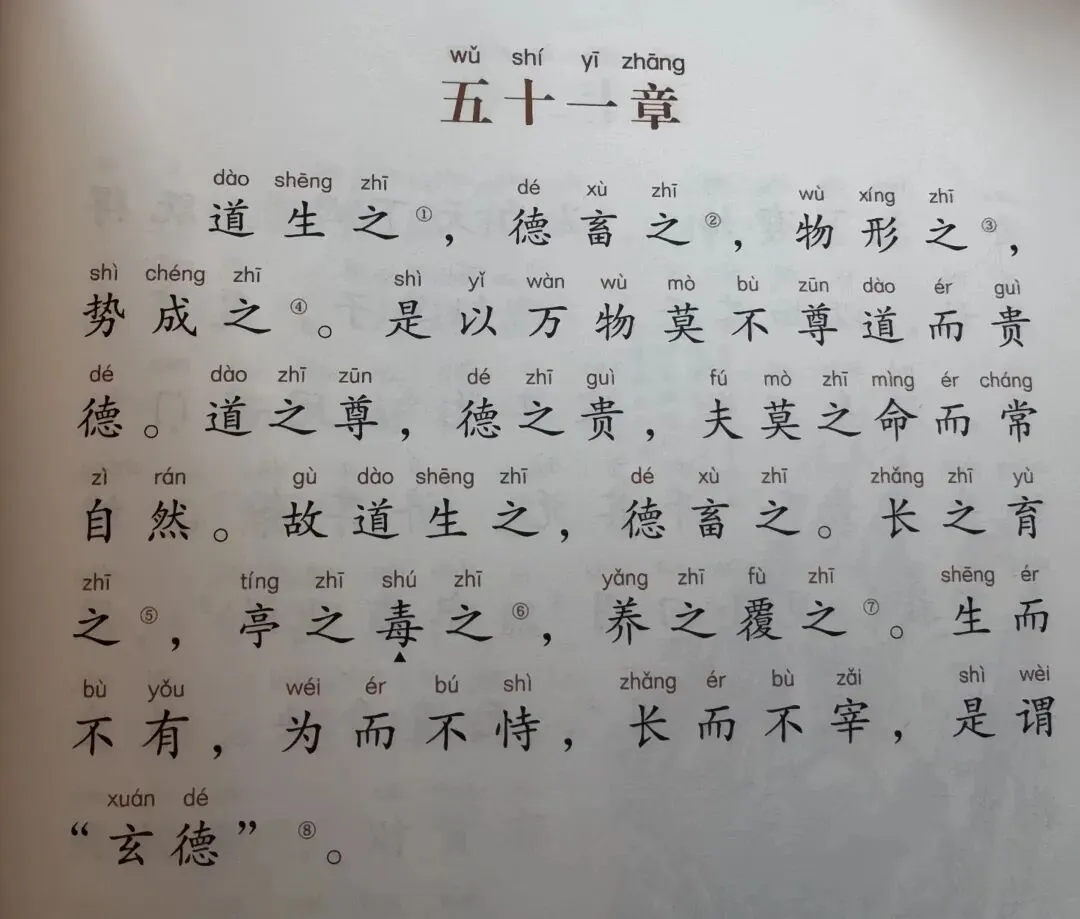 wǔ shí yī zhāng
五十一章
dào shēng zhī dé xù zhī wù xíng zhī
道生之①，德畜之②，物形之③，
shì chéng zhī shì yǐ wàn wù mò bù zūn dào ér guì
势成之④。是以万物莫不尊道而贵
dé dào zhī zūn dé zhī guì fú mò zhī mìng ér cháng
德。道之尊，德之贵，夫莫之命而常
zì rán gù dào shēng zhī dé xù zhī zhǎng zhī yù
自然。故道生之，德畜之。长之育
zhī tíng zhī shú zhī yǎng zhī fù zhī shēng ér
之⑤，亭之毒之⑥，养之覆之⑦。生而
bù yǒu wéi ér bú shì zhǎng ér bù zǎi shì wèi
不有，为而不恃，长而不宰，是谓
xuán dé
“玄德”⑧。